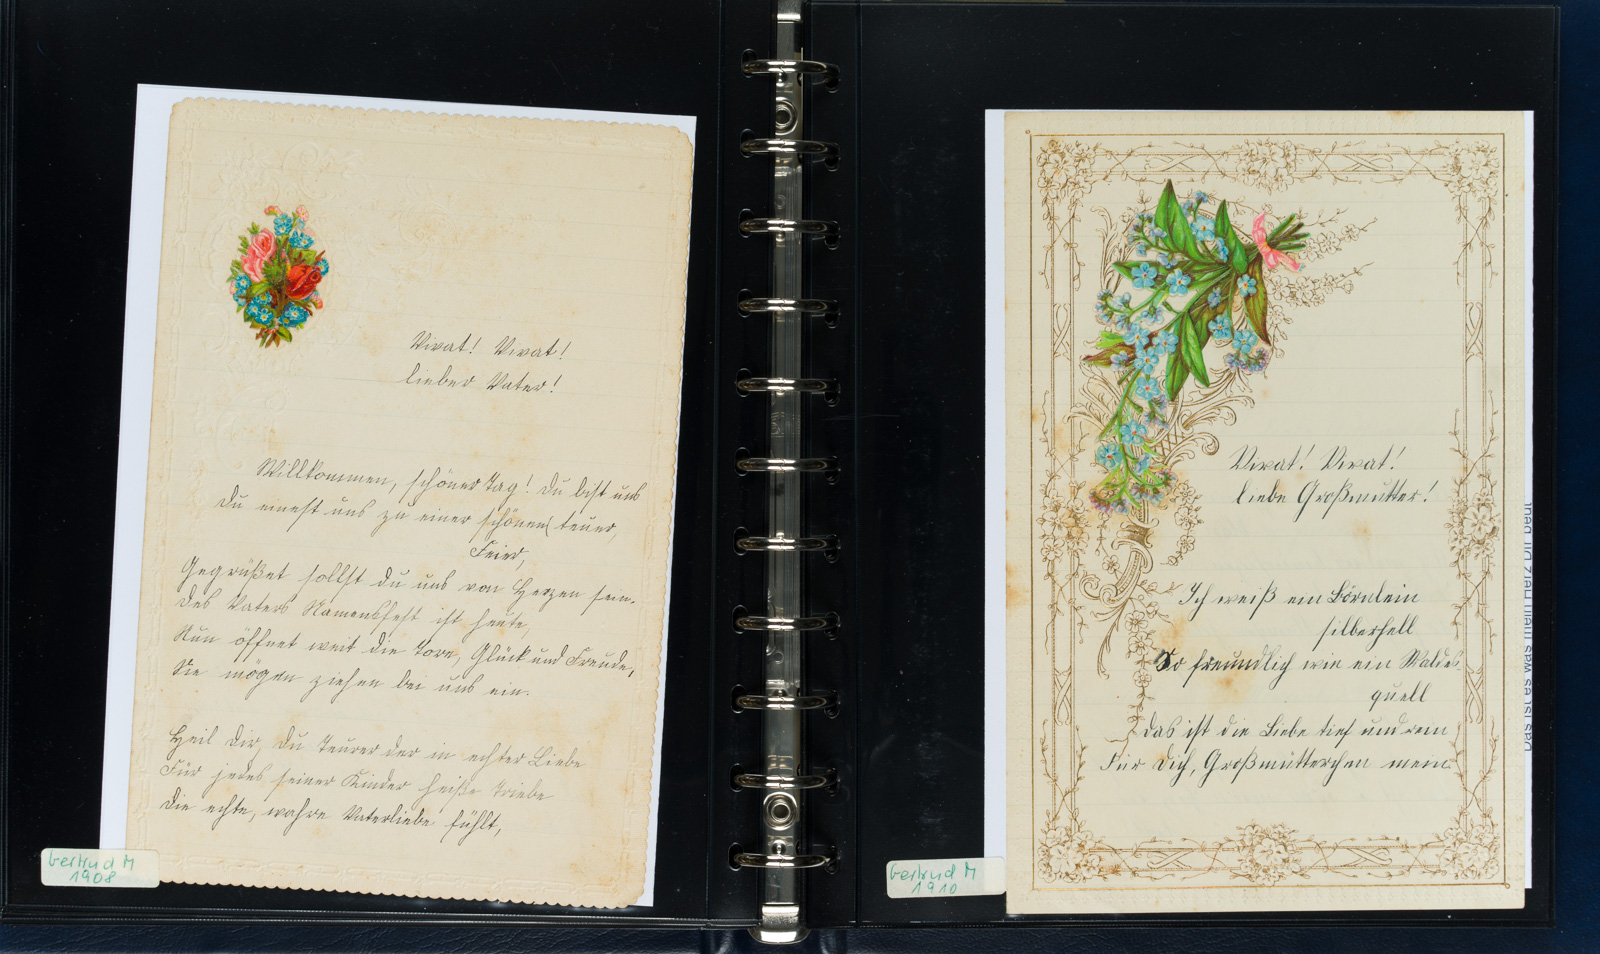 Vivat! Vivat!
lieber Vater!
Willkommen, schöner Tag! Du bist uns
Du einest uns zu einer schönen teuer,
Feier,
Gegrüßet sollst du uns von Herzen sein.
Des Vaters Namensfest ist heute,
Nun öffnet weit die Tore, Glück und Freude,
Sie mögen ziehen bei uns ein.
Heil dir, du Teurer der in echter Liebe
Für jedes seiner Kinder heiße Triebe
Die echte, wahre Vaterliebe fühlt,
Gertrud M
1908
Vivat! Vivat!
liebe Großmutter!
Ich weiß ein Börnlein
silberhell
So freundlich wie ein Waldes
quell
Das ist die Liebe tief und rein
Für Dich, Großmütterchen mein.
Gertrud M
1910
Das ist es was mein Herz Dir beut